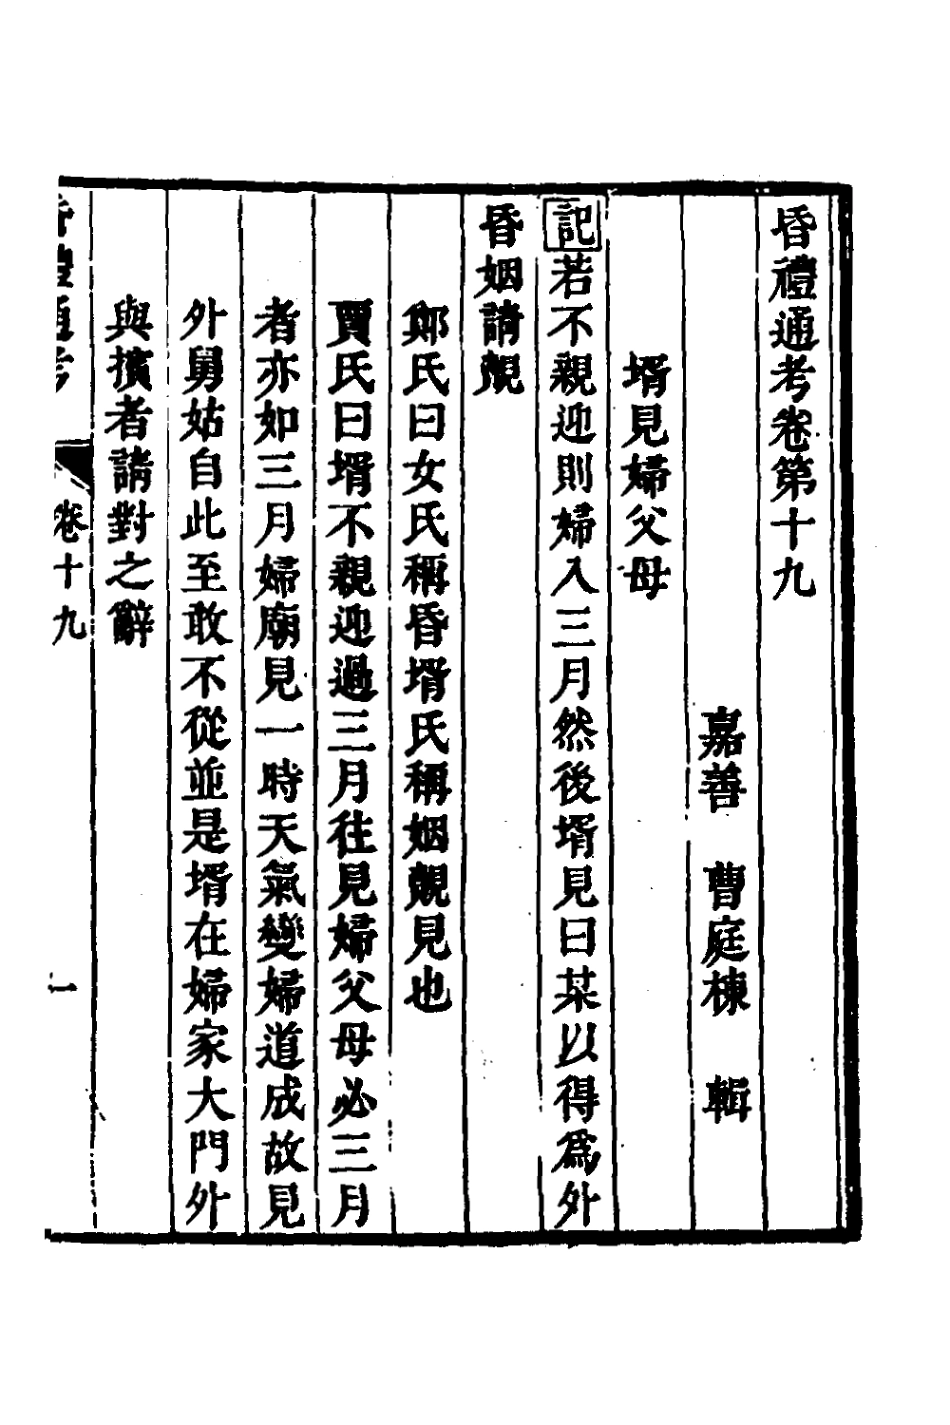 昏禮通考卷第十九
嘉善　曹庭棟　輯
壻見婦父母
記若不親迎則婦入三月然後壻見曰某以得爲外
昏姻請覿
鄭氏曰女氏稱昏壻氏稱姻覿見也
賈氏曰壻不親迎過三月往見婦父母必三月
者亦如三月婦廟見一時天氣變婦道成故見
外舅姑自此至敢不從並是壻在婦家大門外
與擯者請對之辭
昏禮通考　卷十九　一